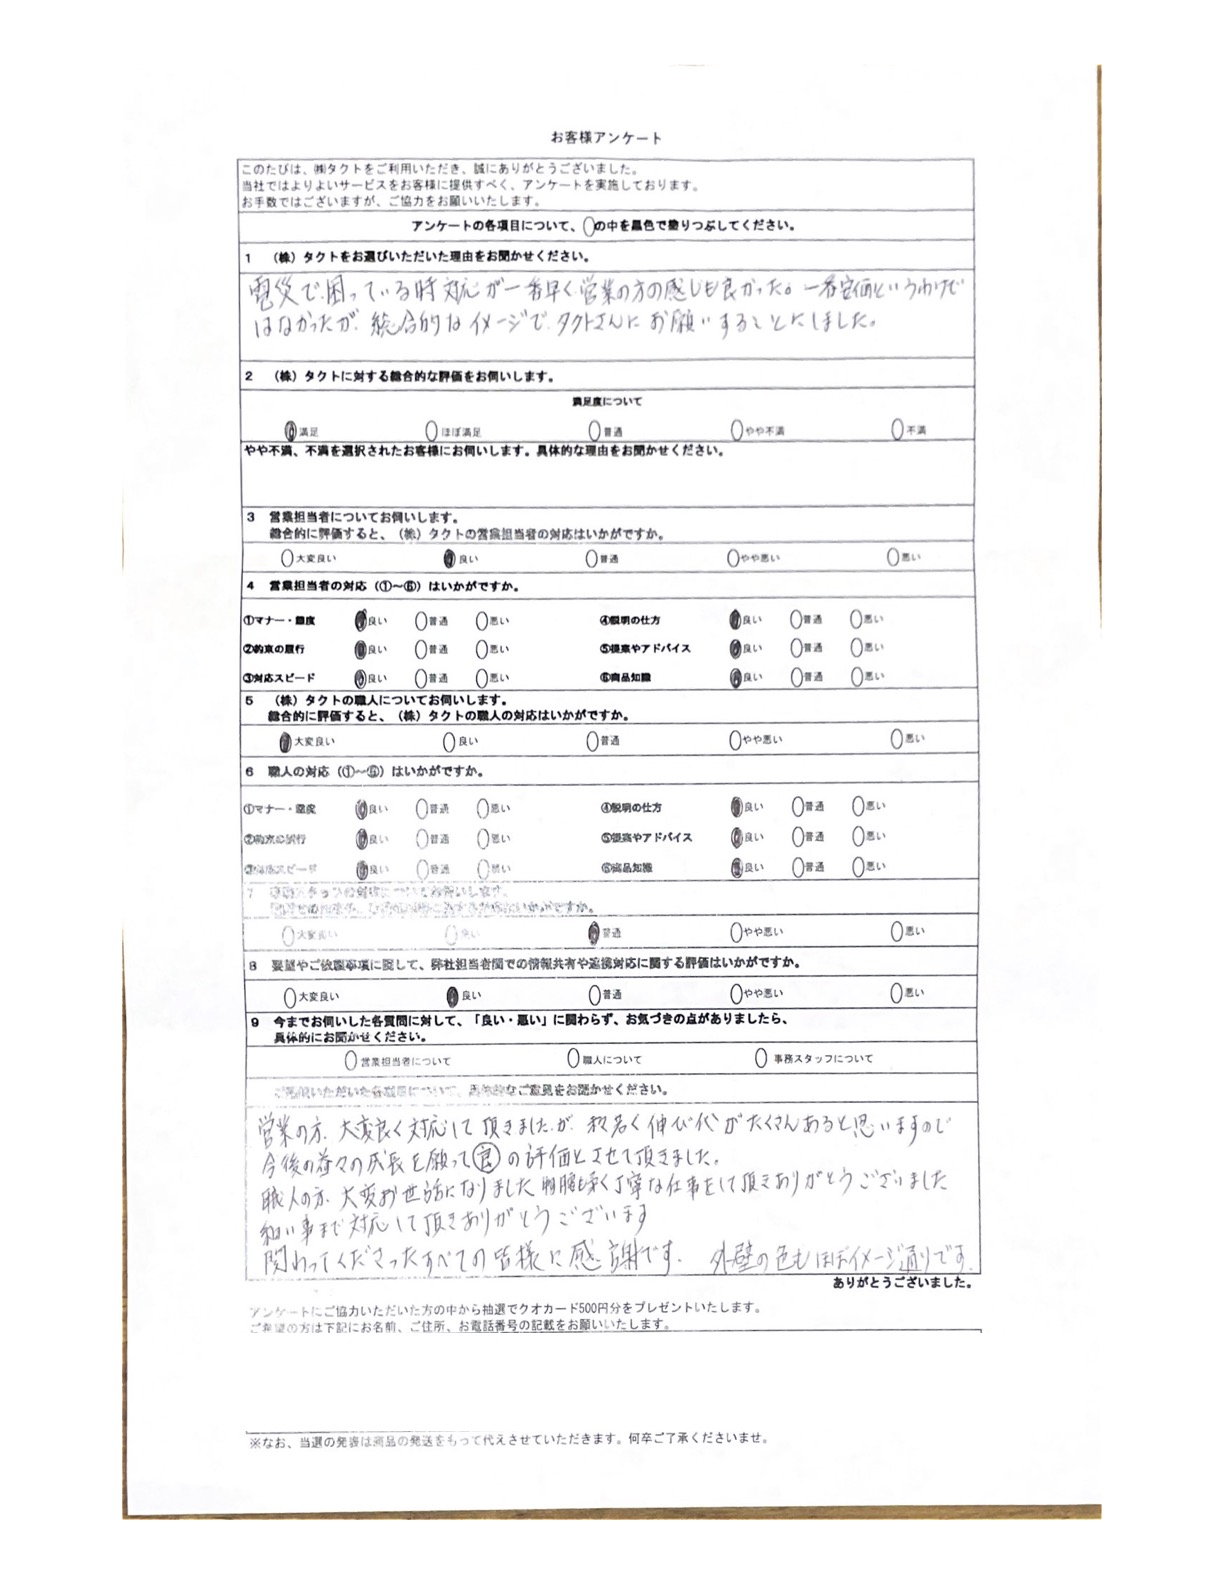 お客様アンケート
このたびは、㈱タクトをご利用いただき、誠にありがとうございました。
当社ではよりよいサービスをお客様に提供すべく、アンケートを実施しております。
お手数ではございますが、ご協力をお願いいたします。
アンケートの各項目について、○の中を黒色で塗りつぶしてください。
1 （株）タクトをお選びいただいた理由をお聞かせください。
で困っている時対応が一番早く営業の方の感じも良かった。一番安価というわけで
はなかったが、総合的なイメージで、タクトさんにお願いすることにしました。
2 （株）タクトに対する総合的な評価をお伺いします。
満足度について
満足 ほぼ満足 普通 やや不満 不満
やや不満、不満を選択されたお客様にお伺いします。具体的な理由をお聞かせください。
3 営業担当者についてお伺いします。
総合的に評価すると、（株）タクトの営業担当者の対応はいかがですか。
大変良い 良い 普通 やや悪い 悪い
4 営業担当者の対応（①～⑥）はいかがですか。
①マナー・態度 良い 普通 悪い ④説明の仕方 良い 普通 悪い
②約束の履行 良い 普通 悪い ⑤提案やアドバイス 良い 普通 悪い
③対応スピード 良い 普通 悪い ⑥商品知識 良い 普通 悪い
5 （株）タクトの職人についてお伺いします。
総合的に評価すると、（株）タクトの職人の対応はいかがですか。
大変良い 良い 普通 やや悪い 悪い
6 職人の対応（①～⑥）はいかがですか。
①マナー・態度 良い 普通 悪い ④説明の仕方 良い 普通 悪い
②約束の履行 良い 普通 悪い ⑤提案やアドバイス 良い 普通 悪い
③対応スピード 良い 普通 悪い ⑥商品知識 良い 普通 悪い
7
いかがですか。
大変良い 良い 普通 やや悪い 悪い
8 要望やご依頼事項に関して、弊社担当者間での情報共有や連携対応に関する評価はいかがですか。
大変良い 良い 普通 やや悪い 悪い
9 今までお伺いした各質問に対して、「良い・悪い」に関わらず、お気づきの点がありましたら、
具体的にお聞かせください。
営業担当者について 職人について 事務スタッフについて
いただいた について、具体的なご意見をお聞かせください。
営業の方、大変良く対応して頂きましたが、 伸び代がたくさんあると思いますので
今後の益々の成長を願って良の評価とさせて頂きました。
職人の方、大変お世話になりました 丁寧な仕事をして頂きありがとうございました
細い事まで対応して頂きありがとうございます
関わってくださったすべての皆様に感謝です。 外壁の色もほぼイメージ通りです。
ありがとうございました。
アンケートにご協力いただいた方の中から抽選でクオカード500円分をプレゼントいたします。
ご希望の方は下記にお名前、ご住所、お電話番号の記載をお願いいたします。
※なお、当選の発表は商品の発送をもって代えさせていただきます。何卒ご了承くださいませ。